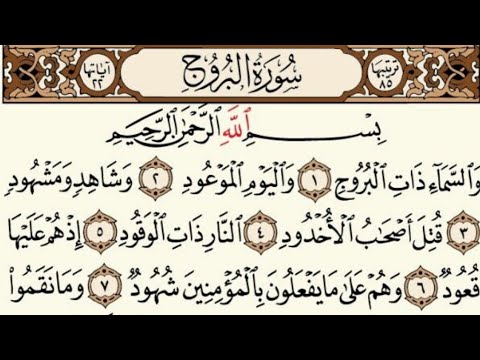 ترتيبها ٨٥ سُورَةُ الْبُرُوجِ آياتها ٢٢
بِسْمِ ٱللَّهِ ٱلرَّحْمَٰنِ ٱلرَّحِيمِ
وَٱلسَّمَآءِ ذَاتِ ٱلْبُرُوجِ ١ وَٱلْيَوْمِ ٱلْمَوْعُودِ ٢ وَشَاهِدٍ وَمَشْهُودٍ
٣ قُتِلَ أَصْحَٰبُ ٱلْأُخْدُودِ ٤ ٱلنَّارِ ذَاتِ ٱلْوَقُودِ ٥ إِذْ هُمْ عَلَيْهَا
قُعُودٌ ٦ وَهُمْ عَلَىٰ مَا يَفْعَلُونَ بِٱلْمُؤْمِنِينَ شُهُودٌ ٧ وَمَا نَقَمُوا۟